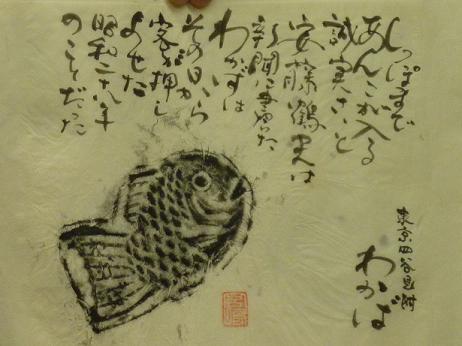 しっぽまで
あんこが入る
誠実さいと
安藤鶴夫は
新聞に書いた
わかばは
その日から
客が押し
よせた
昭和二十八年
のことだった
東京四谷見附
わかば